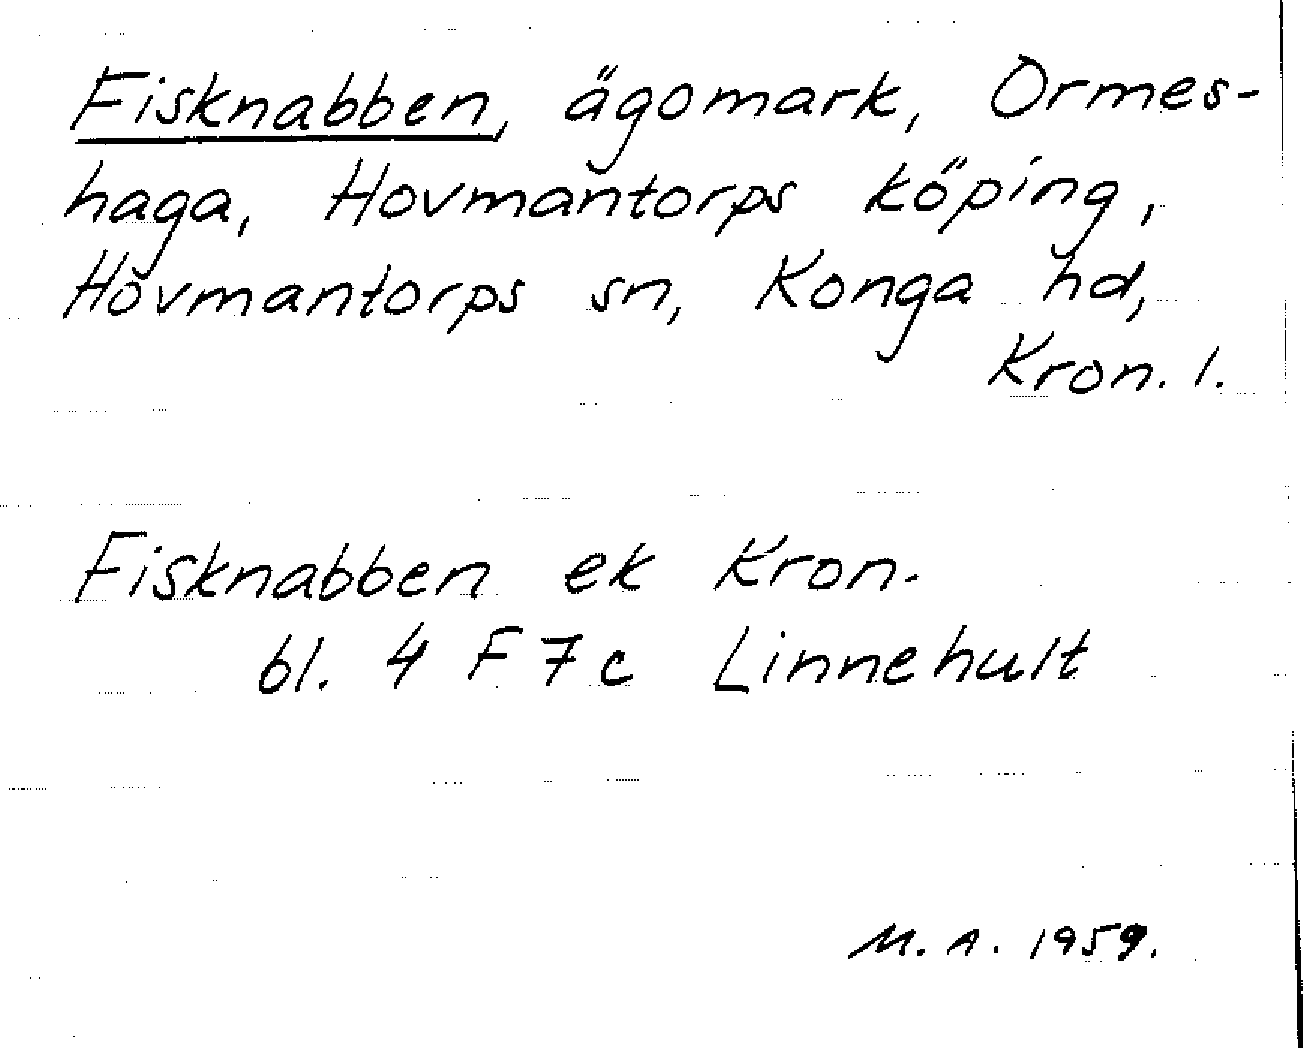 Fisknabben, ägomark, Ormes-
haga, Hovmantorps köping,
Hovmantorps sn, Konga hd,
Kron. l.
Fisknabben ek Kron.
bl. 4 F 7c Linnehult
M.A. 1959.